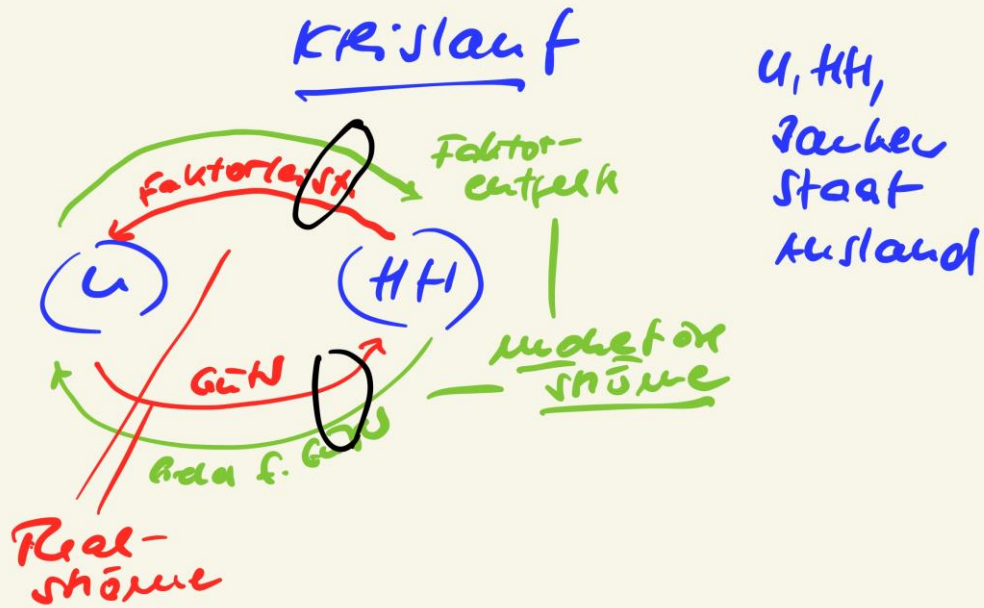 Kreislauf
U, HH,
Banken
Staat
Ausland
Faktorleist.
Faktor-
entgelt
U
HH
Güter
monetäre
Ströme
Geld f. Güter
Real-
ströme